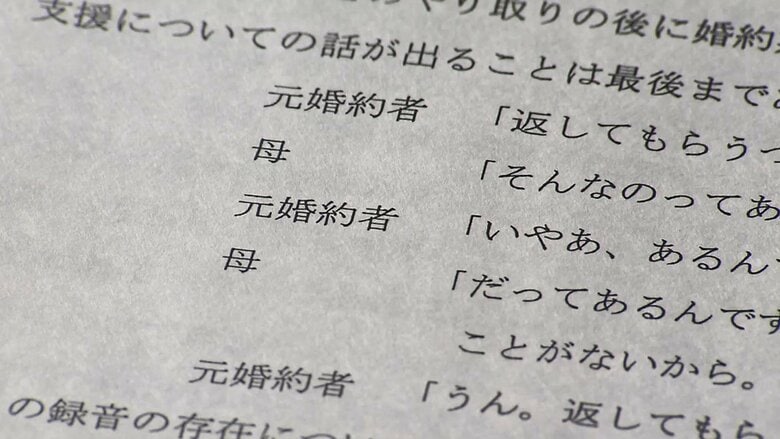 のやり取りの後に婚約
支援についての話が出ることは最後まで
元婚約者 「返してもらうつ
母 「そんなのってあ
元婚約者 「いやあ、あるん
母 「だってあるんです
ことがないから。
元婚約者 「うん。返してもら
の録音の存在につい